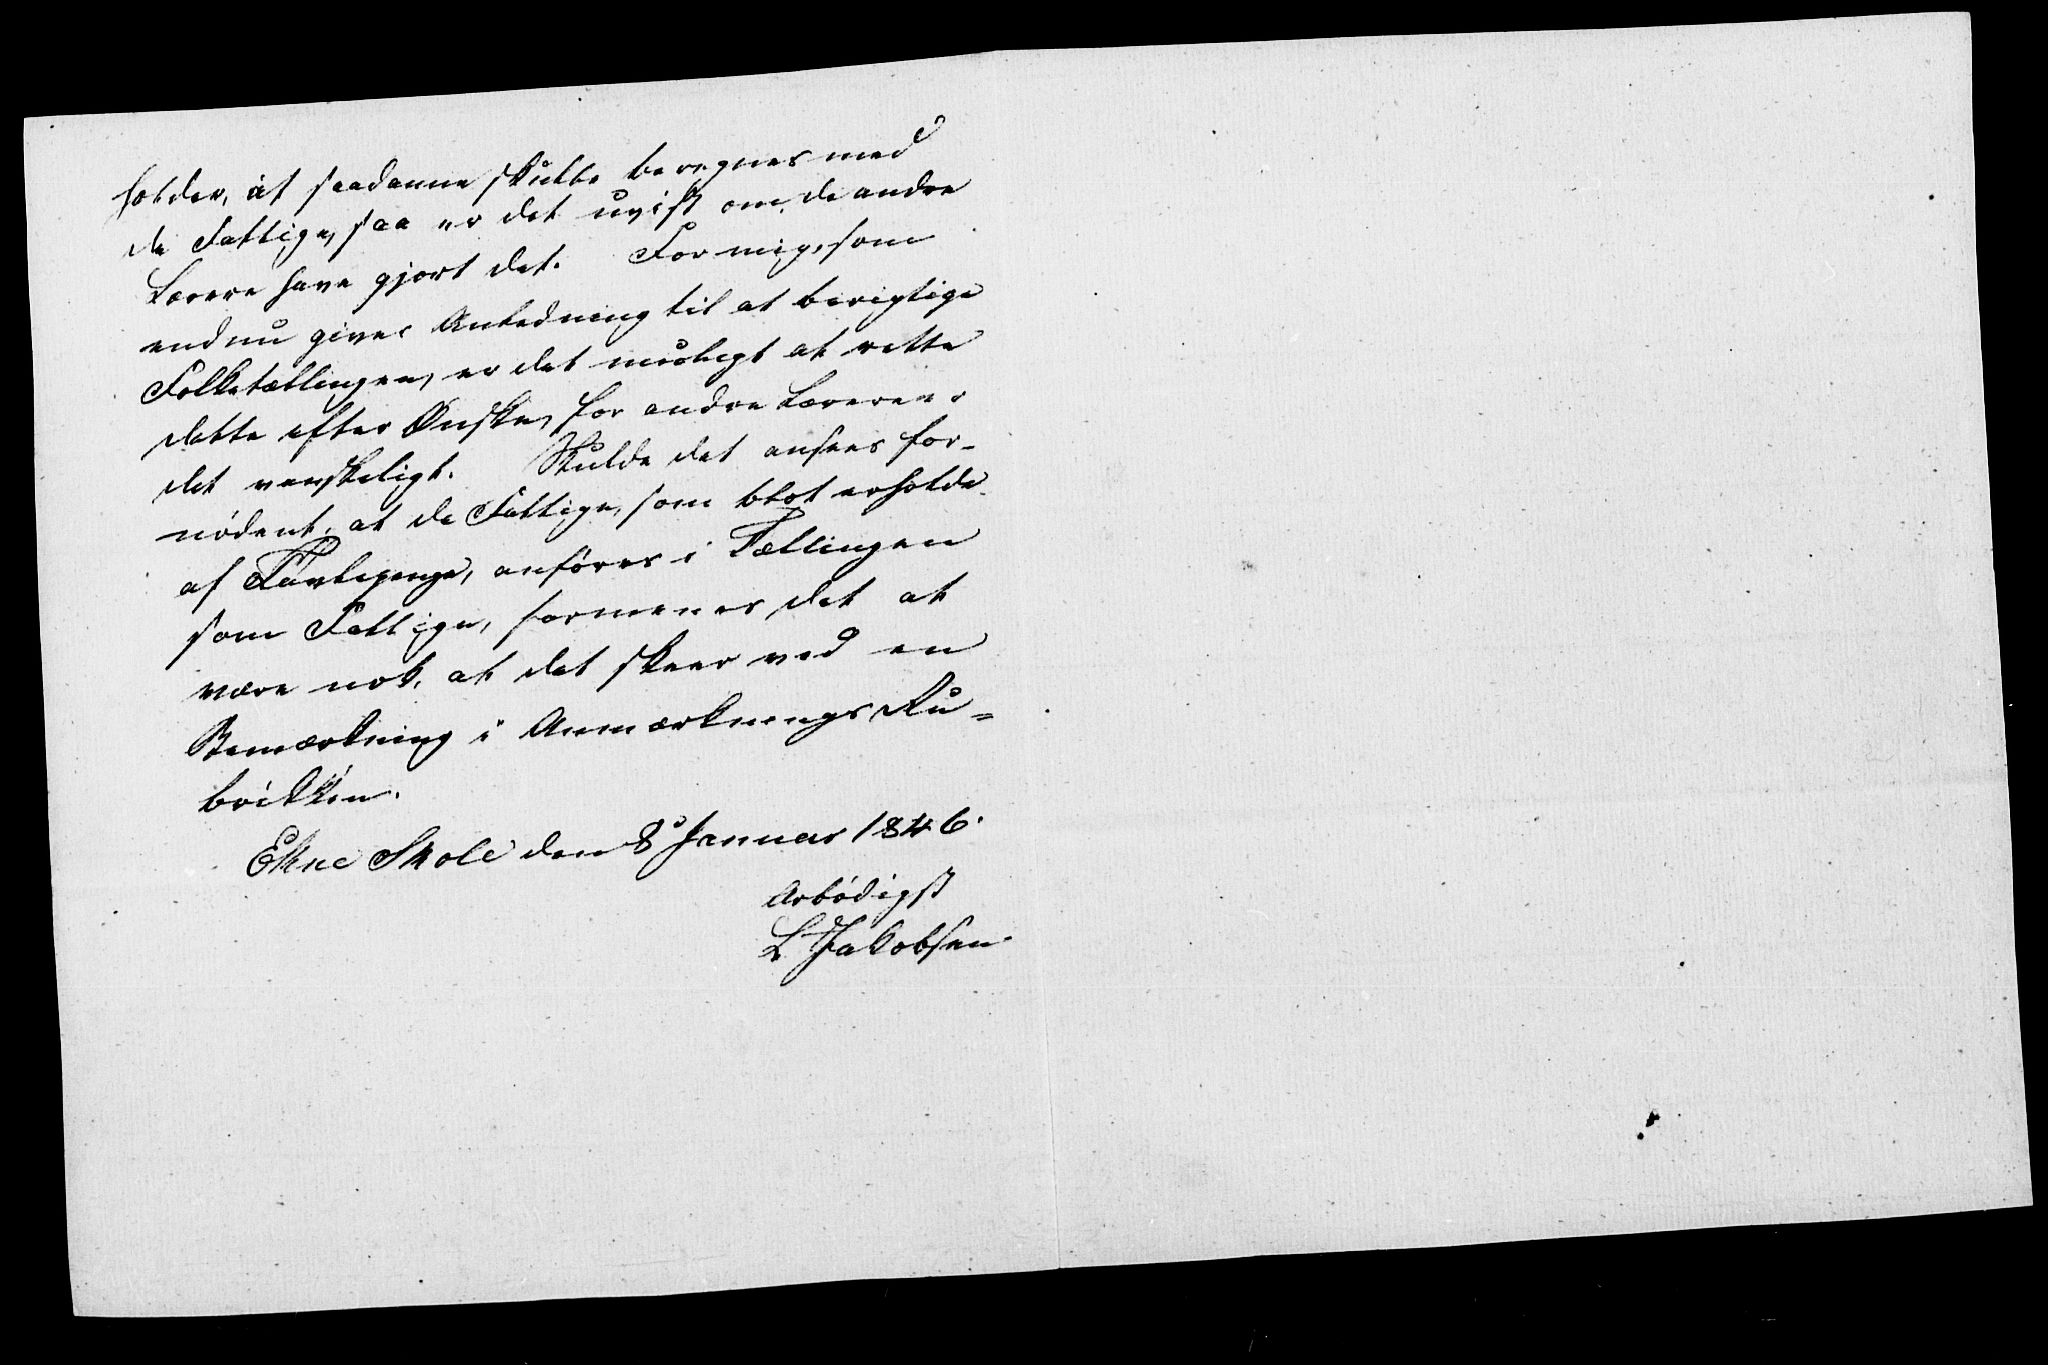 holder, at saadanne skulle beregnes med
de Fattige, saa er det uvist om de andre
Lærere have gjort det. For mig, som
endnu gives Anledning til at berigtige
Folketællingen, er det muligt at rette
dette efter Ønske, for andre Lærere er
det vanskeligt. Skulde det ansees for-
nødent, at de Fattige, som blot erholde
af Tavlepenge, anføres i Tællingen
som Fattige, formenes det at
være nok, at det skeer ved en
Bemærkning i Anmærknings Ru=
brikken.
Ekne Skole den 8 Januar 1846.
Ærbødigst
L Jakobsen.